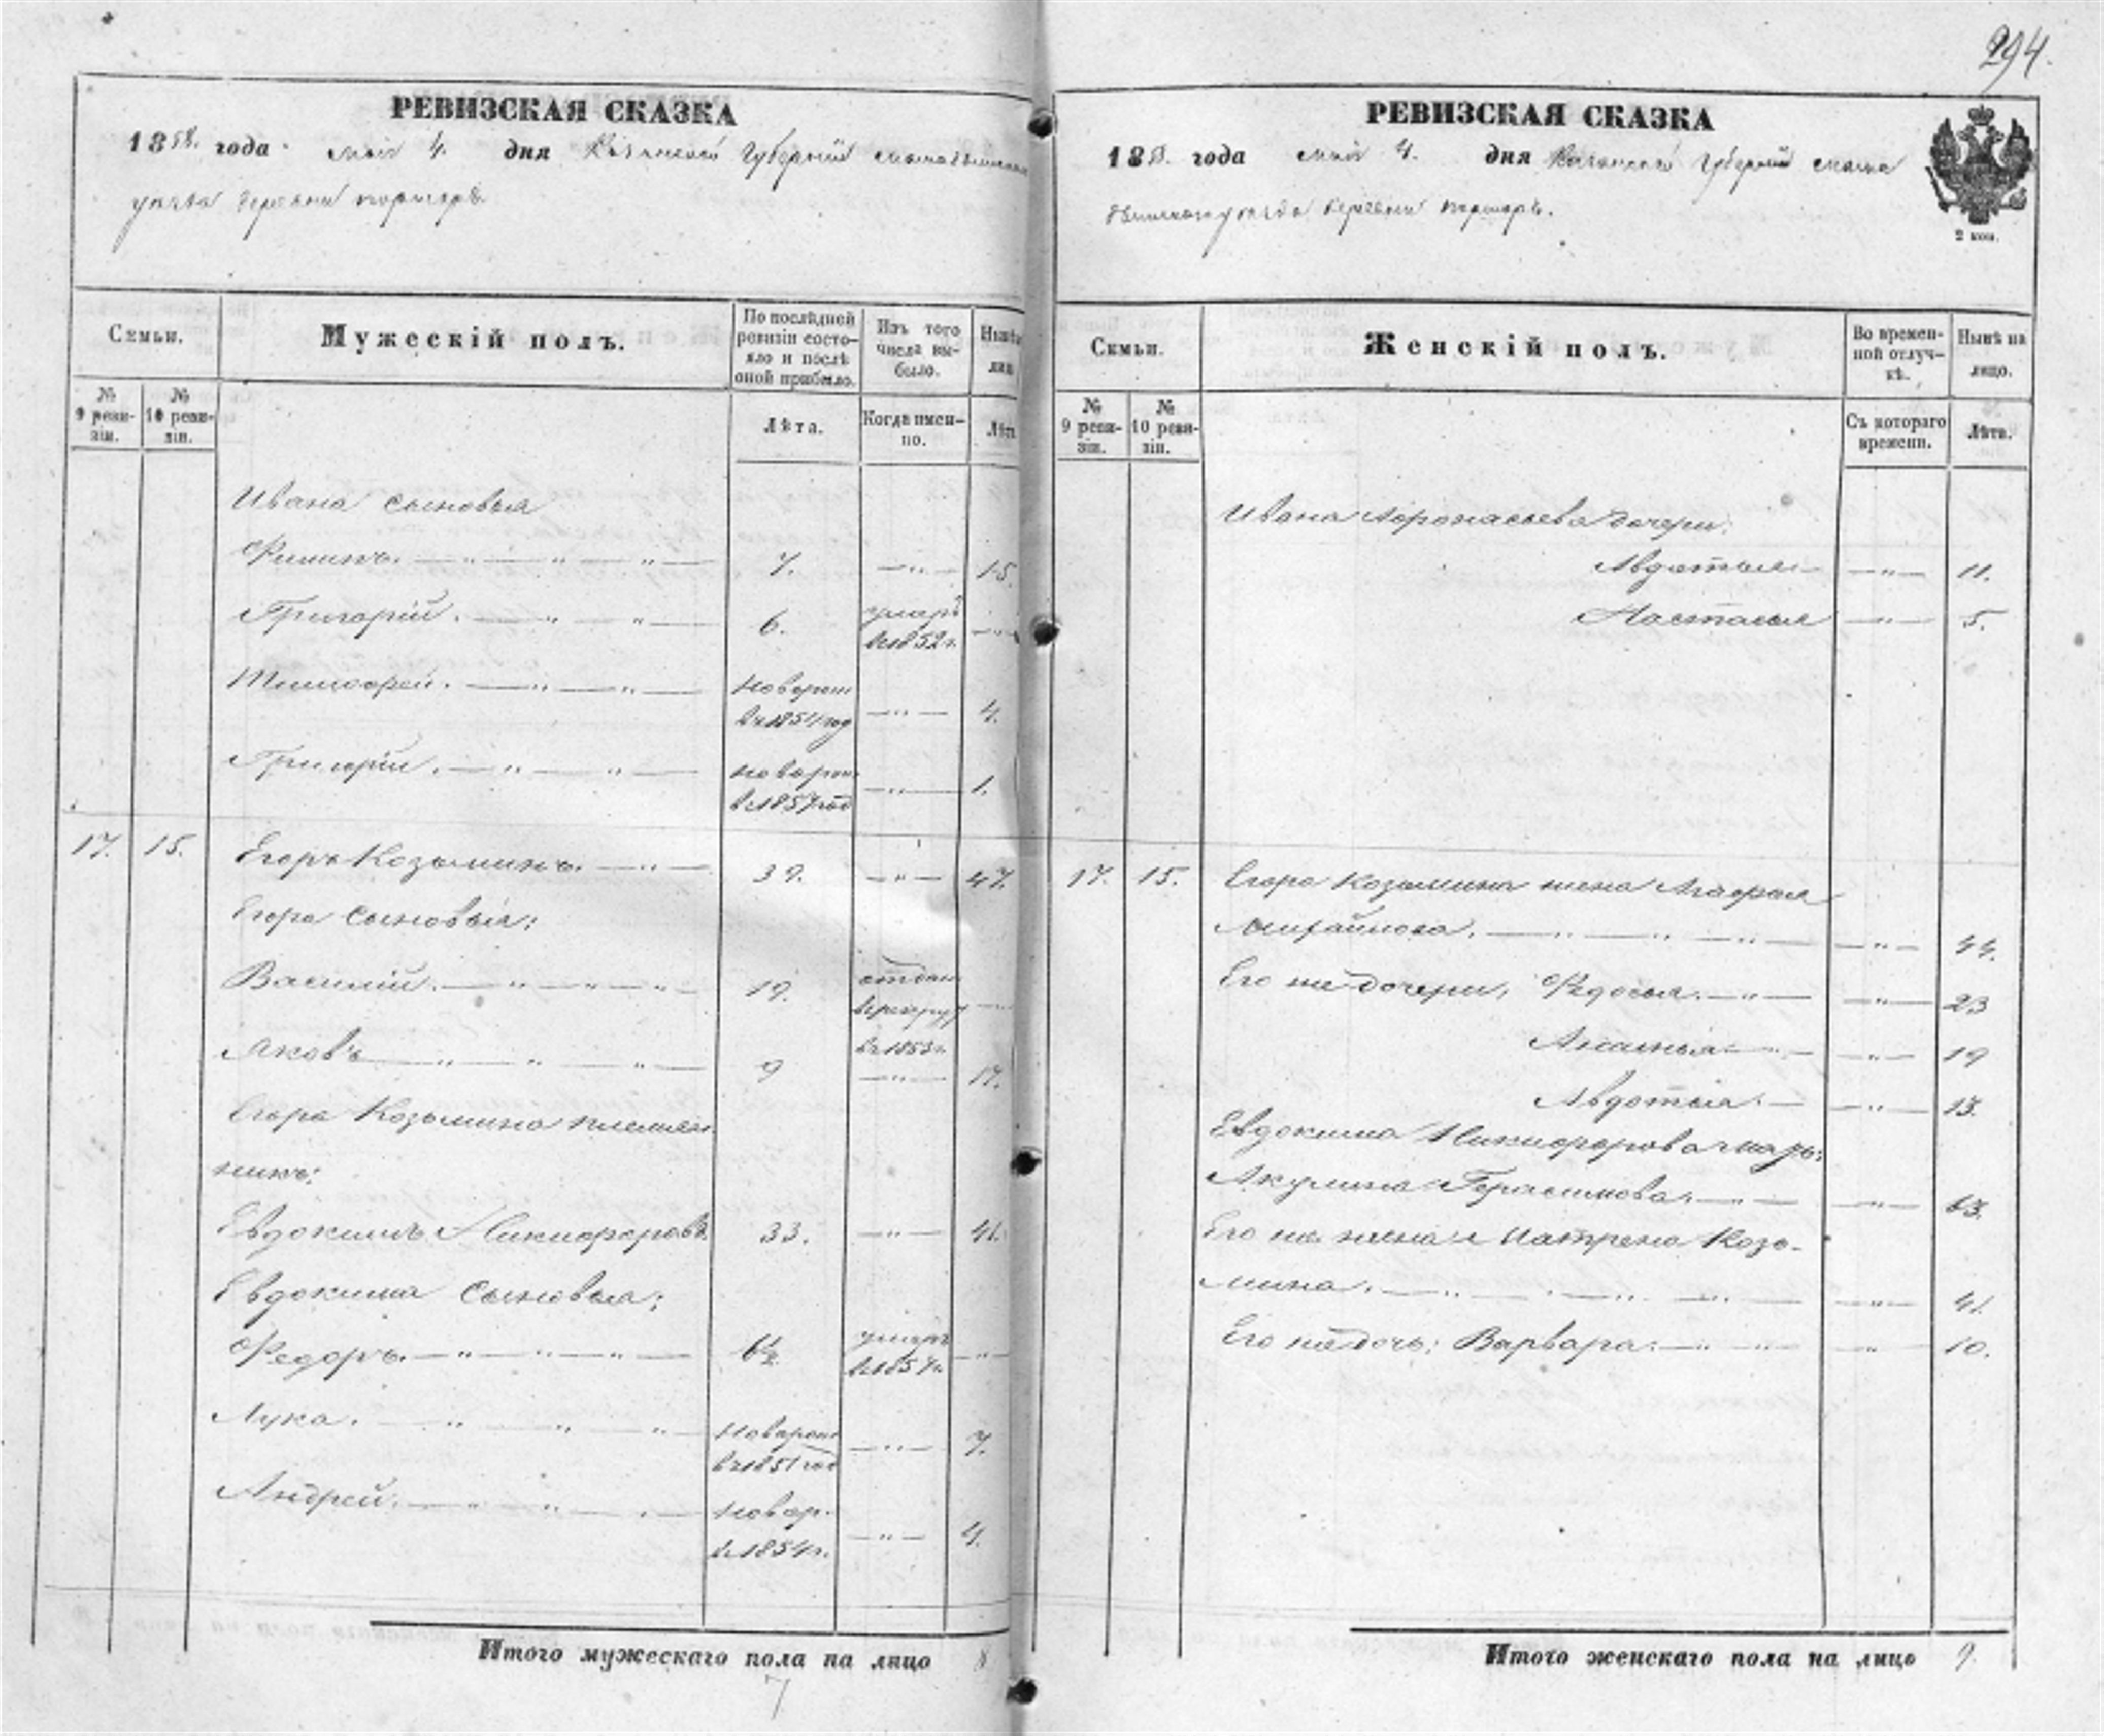 294.
РЕВИЗСКАЯ СКАЗКА
1858. года мая 4. дня Казанской Губернии
уезда деревни
Семьи.
Мужескій полъ.
По послѣдней ревизіи состояло и послѣ оной прибыло.
Изъ того числа выбыло.
Нынѣ на лицо
№ 9 ревизіи.
№ 10 ревизіи.
Лѣта.
Когда именно.
Лѣта
Ивана сыновья
Филипъ. 7. 15.
Григорій. 6. умеръ в 1852 г.
Тимофей. новорож в 1854 год 4.
Григорій. новорож в 1857 год 1.
17. 15. Егоръ Козьминъ. 39. 47.
Егора Сыновья:
Василій. 19. отдан в рекруты в 1853 г.
Яковъ 9 17.
Егора Козьмина племян
никъ:
Евдокимъ Никифоровъ. 33. 41.
Евдокима Сыновья:
Федоръ. 6½ умеръ в 1857 г.
Лука. новорож в 1851 год 7.
Андрей. новор. в 1854 г. 4.
Итого мужескаго пола на лицо 8
7
РЕВИЗСКАЯ СКАЗКА
1858. года мая 4. дня Казанской Губернии
уезда деревни
2 коп.
Семьи.
Женскій полъ.
Во временной отлучкѣ.
Нынѣ на лицо.
№ 9 ревизіи.
№ 10 ревизіи.
Съ котораго времени.
Лѣта.
Ивана Афонасьева дочери:
Авдотья 11.
Настасья 5.
17. 15. Егора Козьмина жена Агафья
Михайлова. 44.
Его же дочери, Федосья. 23
Аксинья 19
Авдотья. 13.
Евдокима Никифорова мать:
Акулина Герасимова. 63.
Его же жена Матрена Козь-
мина. 41.
Его же дочь: Варвара: 10.
Итого женскаго пола на лицо 9.